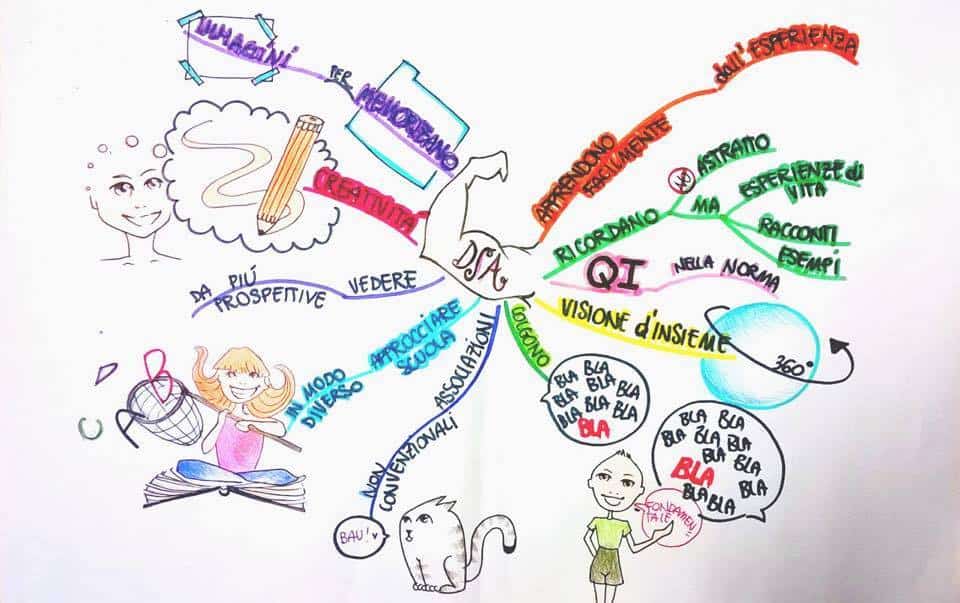 IMMAGINI
PER
MEMORIZZANO
CREATIVITÀ
DA PIÚ
PROSPETTIVE
VEDERE
IN MODO
DIVERSO
APPROCCIARE
SCUOLA
C A B D
NON
CONVENZIONALI
ASSOCIAZIONI
BAU!
DSA
APPRENDONO
FACILMENTE
dall'ESPERIENZA
RICORDANO
NO
ASTRATTO
MA
ESPERIENZE di
VITA
RACCONTI
ESEMPI
QI
NELLA NORMA
VISIONE d'INSIEME
360°
COLGONO
BLA BLA
BLA BLA BLA
BLA BLA BLA
BLA
BLA BLA
BLA BLA BLA
BLA BLA
BLA BLA
BLA BLA
FONDAMEN
TALE